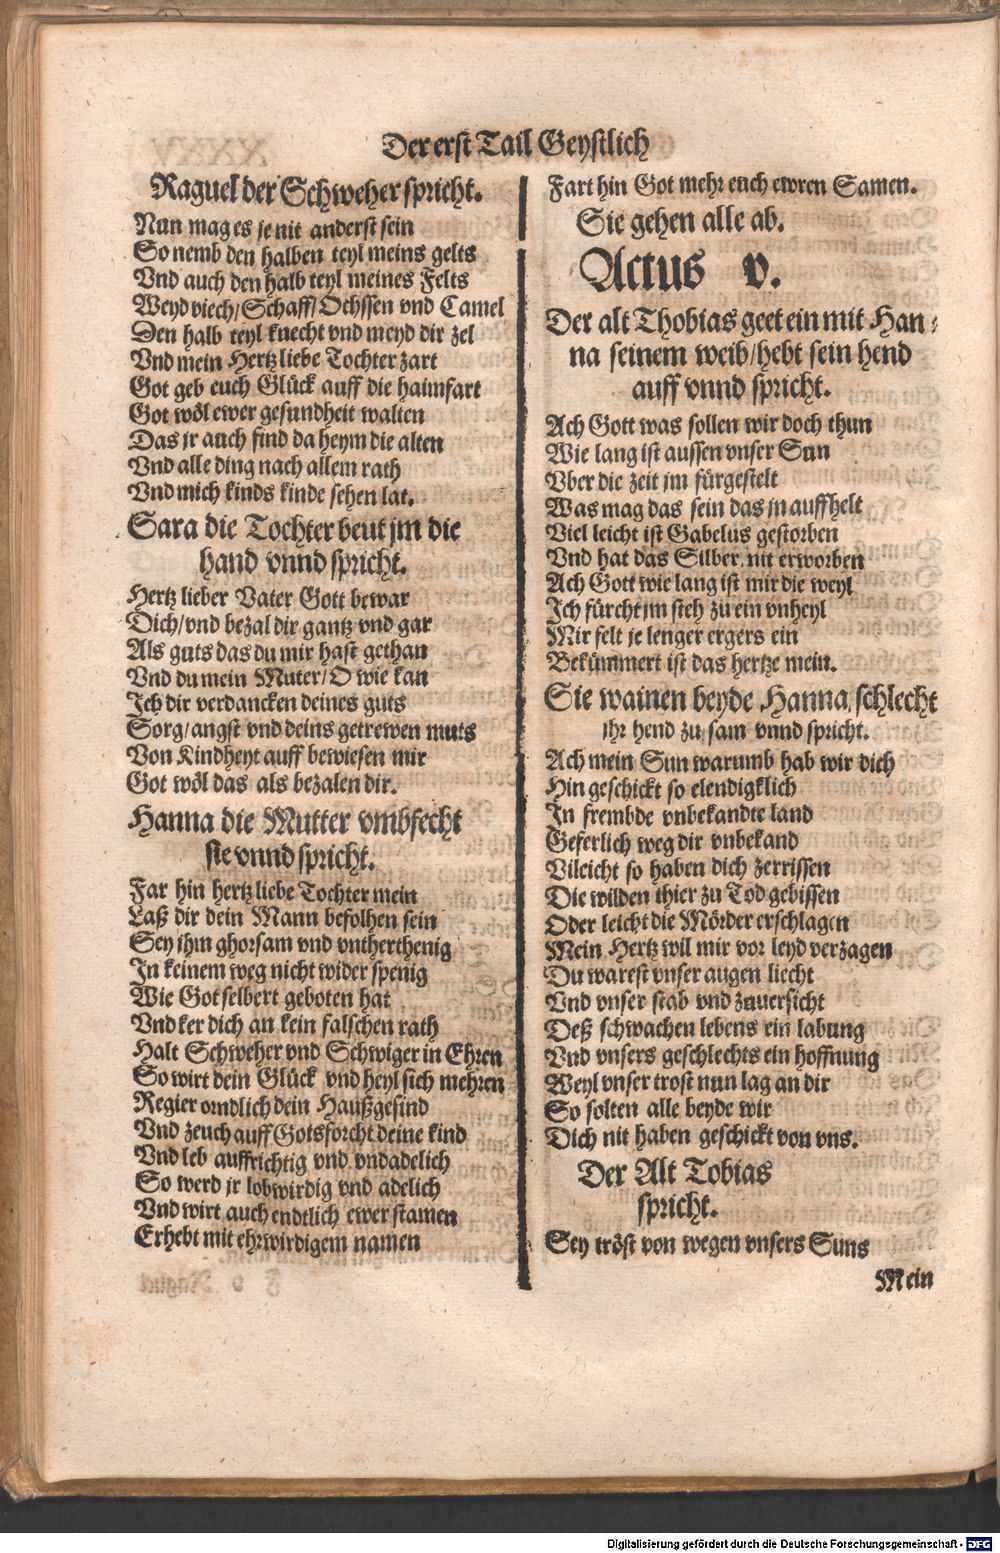 Der erst Tail Geystlich
Raguel der Schweher spricht.
Nun mag es je nit anderst sein
So nemb den halben teyl meins gelts
Vnd auch den halb teyl meines Felts
Weyd viech/Schaff/Ochssen vnd Camel
Den halb teyl knecht vnd meyd dir zel
Vnd mein Hertz liebe Tochter zart
Got geb euch Glück auff die haimfart
Got wöl ewer gesundheit walten
Das jr auch find da heym die alten
Vnd alle ding nach allem rath
Vnd mich kinds kinde sehen lat.
Sara die Tochter beut jm die
hand vnnd spricht.
Hertz lieber Vater Gott bewar
Dich/vnd bezal dir gantz vnd gar
Als guts das du mir hast gethan
Vnd du mein Muter/O wie kan
Ich dir verdancken deines guts
Sorg/angst vnd deins getrewen muts
Von Kindheyt auff bewiesen mir
Got wöl das als bezalen dir.
Hanna die Mutter vmbfecht
sie vnnd spricht.
Far hin hertz liebe Tochter mein
Laß dir dein Mann befolhen sein
Sey ihm ghorsam vnd vntherthenig
In keinem weg nicht wider spenig
Wie Got selbert geboten hat
Vnd ker dich an kein falschen rath
Halt Schweher vnd Schwiger in Ehren
So wirt dein Glück vnd heyl sich mehren
Regier orndlich dein Haußgesind
Vnd zeuch auff Gotsforcht deine kind
Vnd leb auffrichtig vnd vndadelich
So werd jr lobwirdig vnd adelich
Vnd wirt auch endtlich ewer stamen
Erhebt mit ehrwirdigem namen
Fart hin Got mehr euch ewren Samen.
Sie gehen alle ab.
Actus v.
Der alt Thobias geet ein mit Han-
na seinem weib/hebt sein hend
auff vnnd spricht.
Ach Gott was sollen wir doch thun
Wie lang ist aussen vnser Sun
Vber die zeit jm fürgestelt
Was mag das sein das jn auffhelt
Viel leicht ist Gabelus gestorben
Vnd hat das Silber nit erworben
Ach Gott wie lang ist mir die weyl
Ich fürcht jm steh zu ein vnheyl
Mir felt je lenger ergers ein
Bekümmert ist das hertze mein.
Sie wainen beyde Hanna schlecht
ihr hend zu sam vnnd spricht.
Ach mein Sun warumb hab wir dich
Hin geschickt so elendigklich
In frembde vnbekandte land
Geferlich weg dir vnbekand
Vileicht so haben dich zerrissen
Die wilden thier zu Tod gebissen
Oder leicht die Mörder erschlagen
Mein Hertz wil mir vor leyd verzagen
Du warest vnser augen liecht
Vnd vnser stab vnd zuuersicht
Deß schwachen lebens ein labung
Vnd vnsers geschlechts ein hoffnung
Weyl vnser trost nun lag an dir
So solten alle beyde wir
Dich nit haben geschickt von vns.
Der Alt Tobias
spricht.
Sey tröst von wegen vnsers Suns
Mein
Digitalisierung gefördert durch die Deutsche Forschungsgemeinschaft - DFG